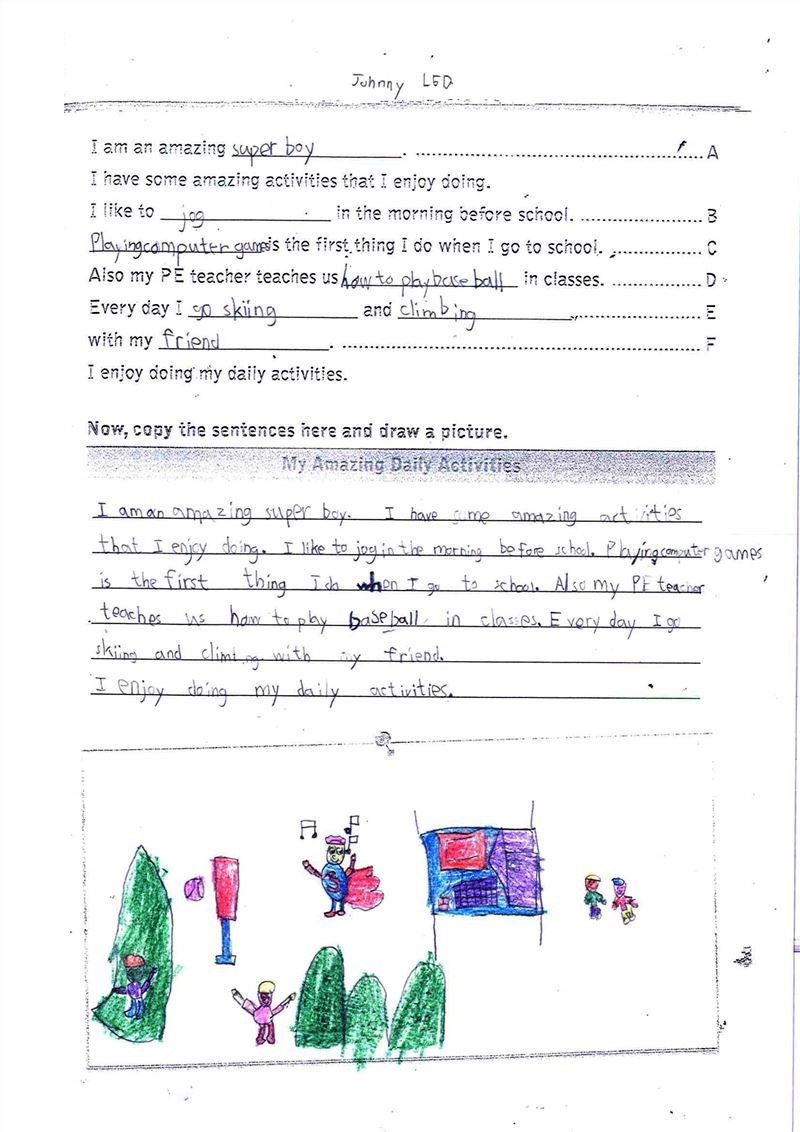 Johnny L5D
I am an amazing super boy. A
I have some amazing activities that I enjoy doing.
I like to jog in the morning before school. B
Playing computer games is the first thing I do when I go to school. C
Also my PE teacher teaches us how to play base ball in classes. D
Every day I go skiing and climbing E
with my friend. F
I enjoy doing my daily activities.
Now, copy the sentences here and draw a picture.
My Amazing Daily Activities
I am an amazing super boy. I have some amazing activities
that I enjoy doing. I like to jog in the morning before school. Playing computer games
is the first thing I do when I go to school. Also my PE teacher
teaches us how to play baseball in classes. Every day I go
skiing and climbing with my friend.
I enjoy doing my daily activities.
S